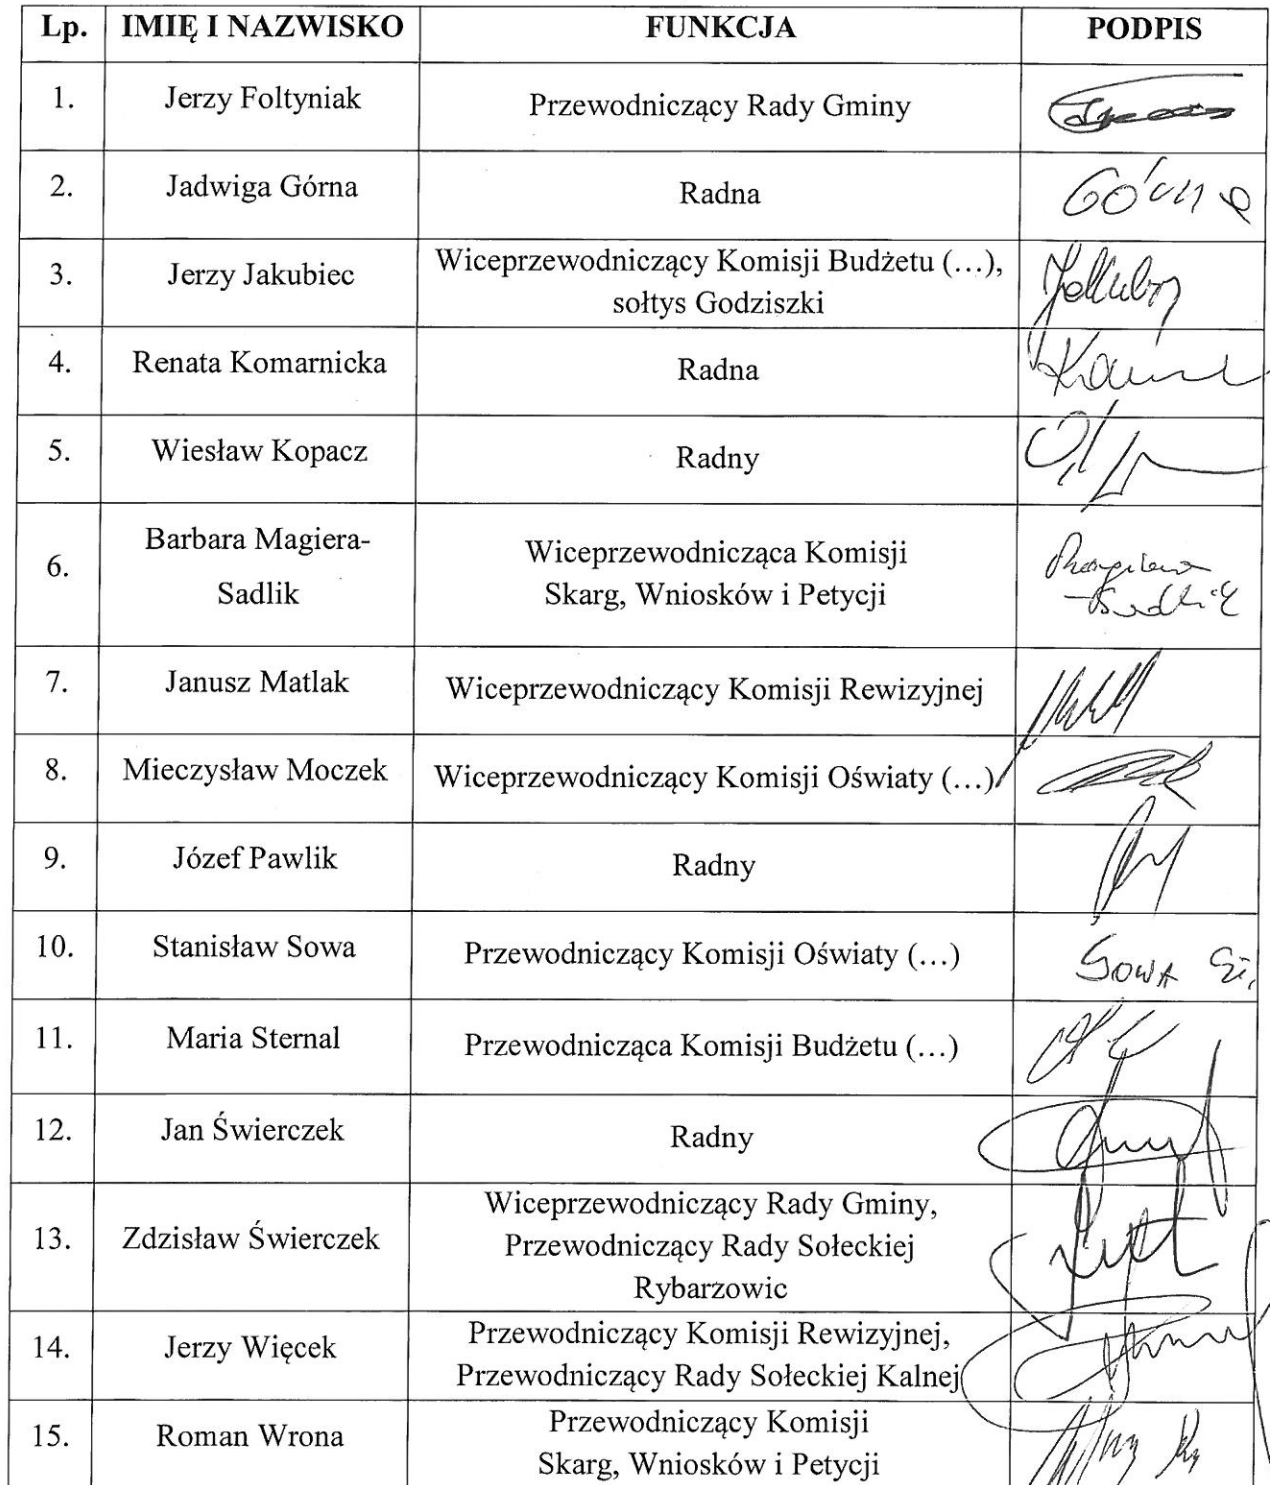 Lp. IMIĘ I NAZWISKO FUNKCJA PODPIS
1. Jerzy Foltyniak Przewodniczący Rady Gminy
2. Jadwiga Górna Radna Górna
3. Jerzy Jakubiec Wiceprzewodniczący Komisji Budżetu (…),
sołtys Godziszki
4. Renata Komarnicka Radna
5. Wiesław Kopacz Radny
6. Barbara Magiera-
Sadlik
Wiceprzewodnicząca Komisji
Skarg, Wniosków i Petycji
Magiera
-Sadlik
7. Janusz Matlak Wiceprzewodniczący Komisji Rewizyjnej
8. Mieczysław Moczek Wiceprzewodniczący Komisji Oświaty (…)
9. Józef Pawlik Radny
10. Stanisław Sowa Przewodniczący Komisji Oświaty (…) Sowa St.
11. Maria Sternal Przewodnicząca Komisji Budżetu (…)
12. Jan Świerczek Radny
13. Zdzisław Świerczek Wiceprzewodniczący Rady Gminy,
Przewodniczący Rady Sołeckiej
Rybarzowic
14. Jerzy Więcek Przewodniczący Komisji Rewizyjnej,
Przewodniczący Rady Sołeckiej Kalnej
15. Roman Wrona Przewodniczący Komisji
Skarg, Wniosków i Petycji